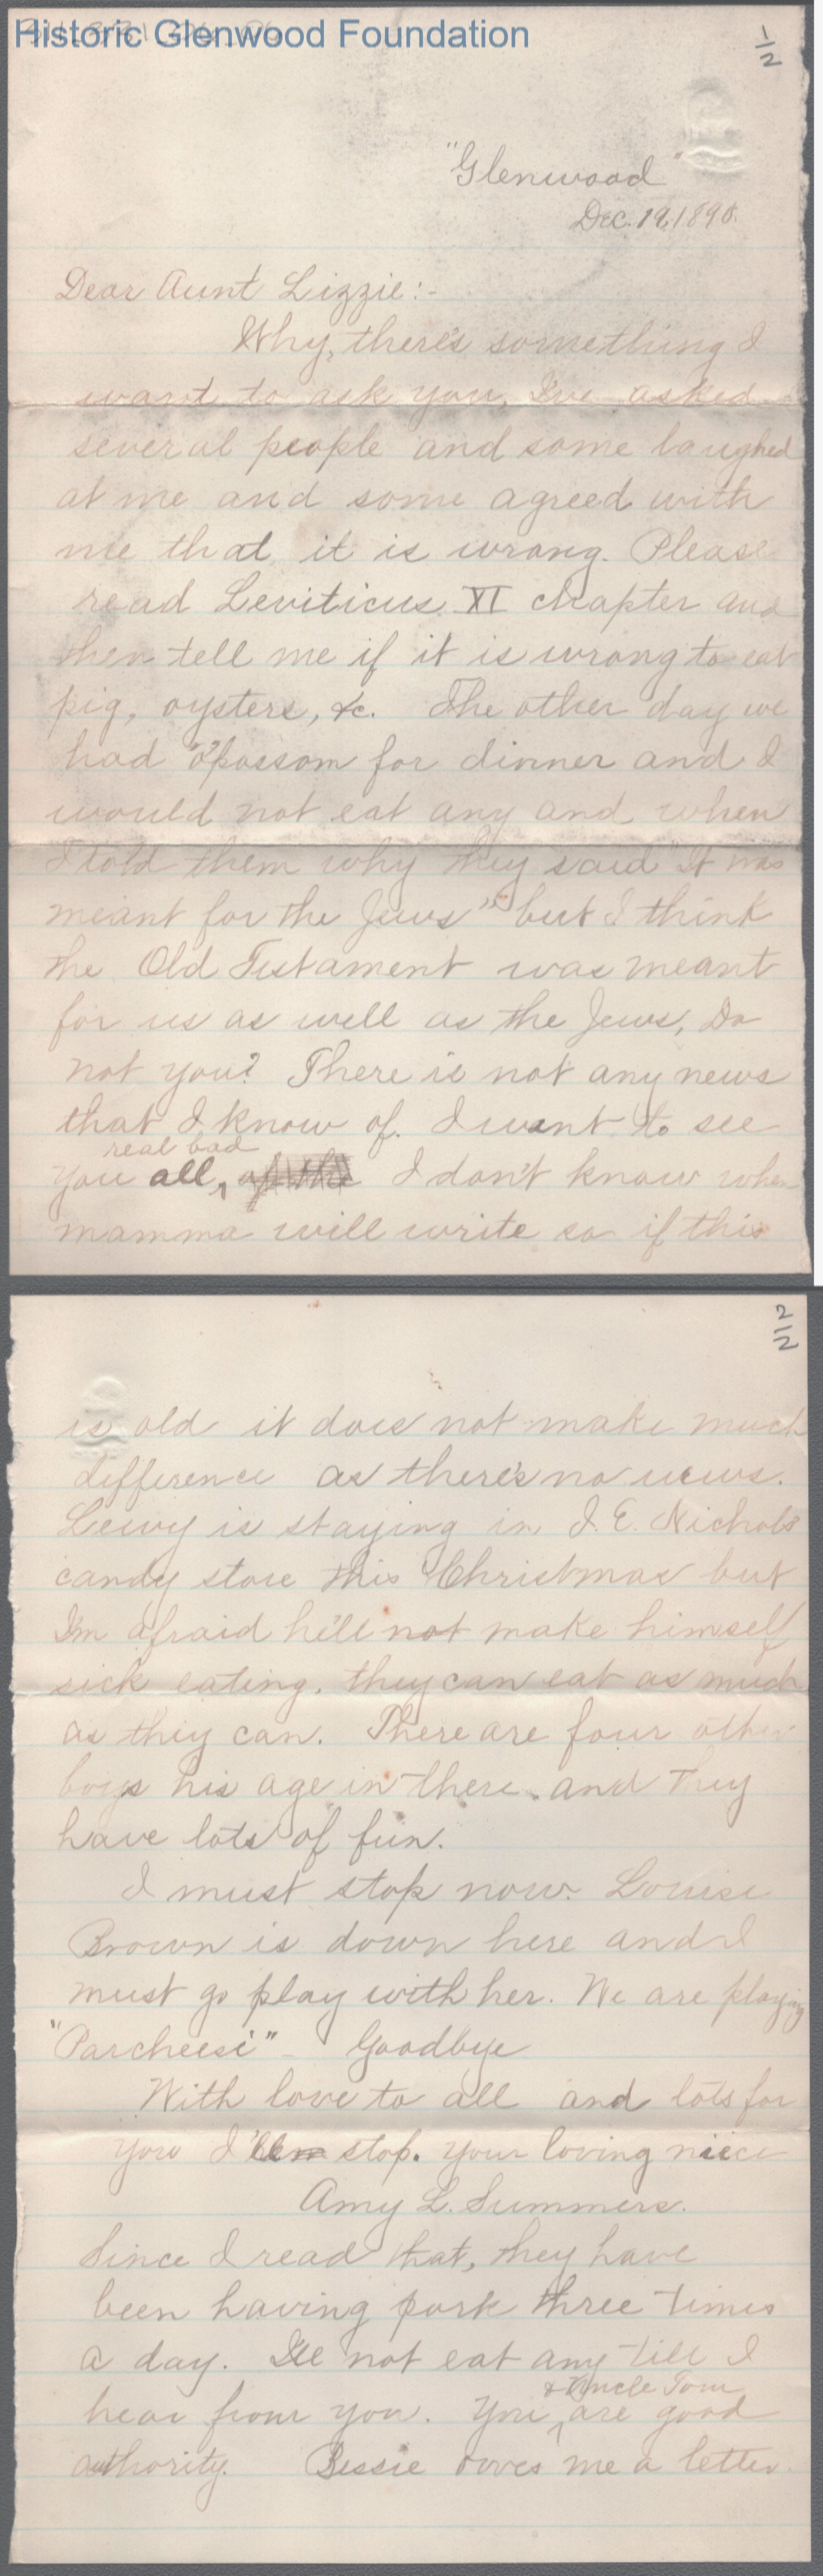 Historic Glenwood Foundation
1/2
"Glenwood"
Dec. 19, 1890.
Dear Aunt Lizzie:-
Why, there's something I
want to ask you, I've asked
several people and some laughed
at me and some agreed with
me that it is wrong. Please
read Leviticus XI chapter and
then tell me if it is wrong to eat
pig, oysters, &c. The other day we
had "o'possom for dinner and I
would not eat any and when
I told them why they said "It was
meant for the Jews" but I think
the Old Testament was meant
for us as well as the Jews, Do
not you? There is not any news
that I know of. I want to see
real bad
you all, of the I don't know when
mamma will write so if this
2/2
is old it does not make much
difference as there's no news.
Lewy is staying in J. E. Nichols
candy store this Christmas but
I'm afraid he'll not make himself
sick eating. they can eat as much
as they can. There are four other
boys his age in there. and they
have lots of fun.
I must stop now. Louise
Brown is down here and I
must go play with her. We are playing
"Parcheesi" - Goodbye
With love to all and lots for
you I'll stop. your loving niece
Amy L. Summers.
Since I read that, they have
been having pork three times
a day. I'll not eat any till I
& Uncle Tom
hear from you. You are good
authority. Bessie owes me a letter.